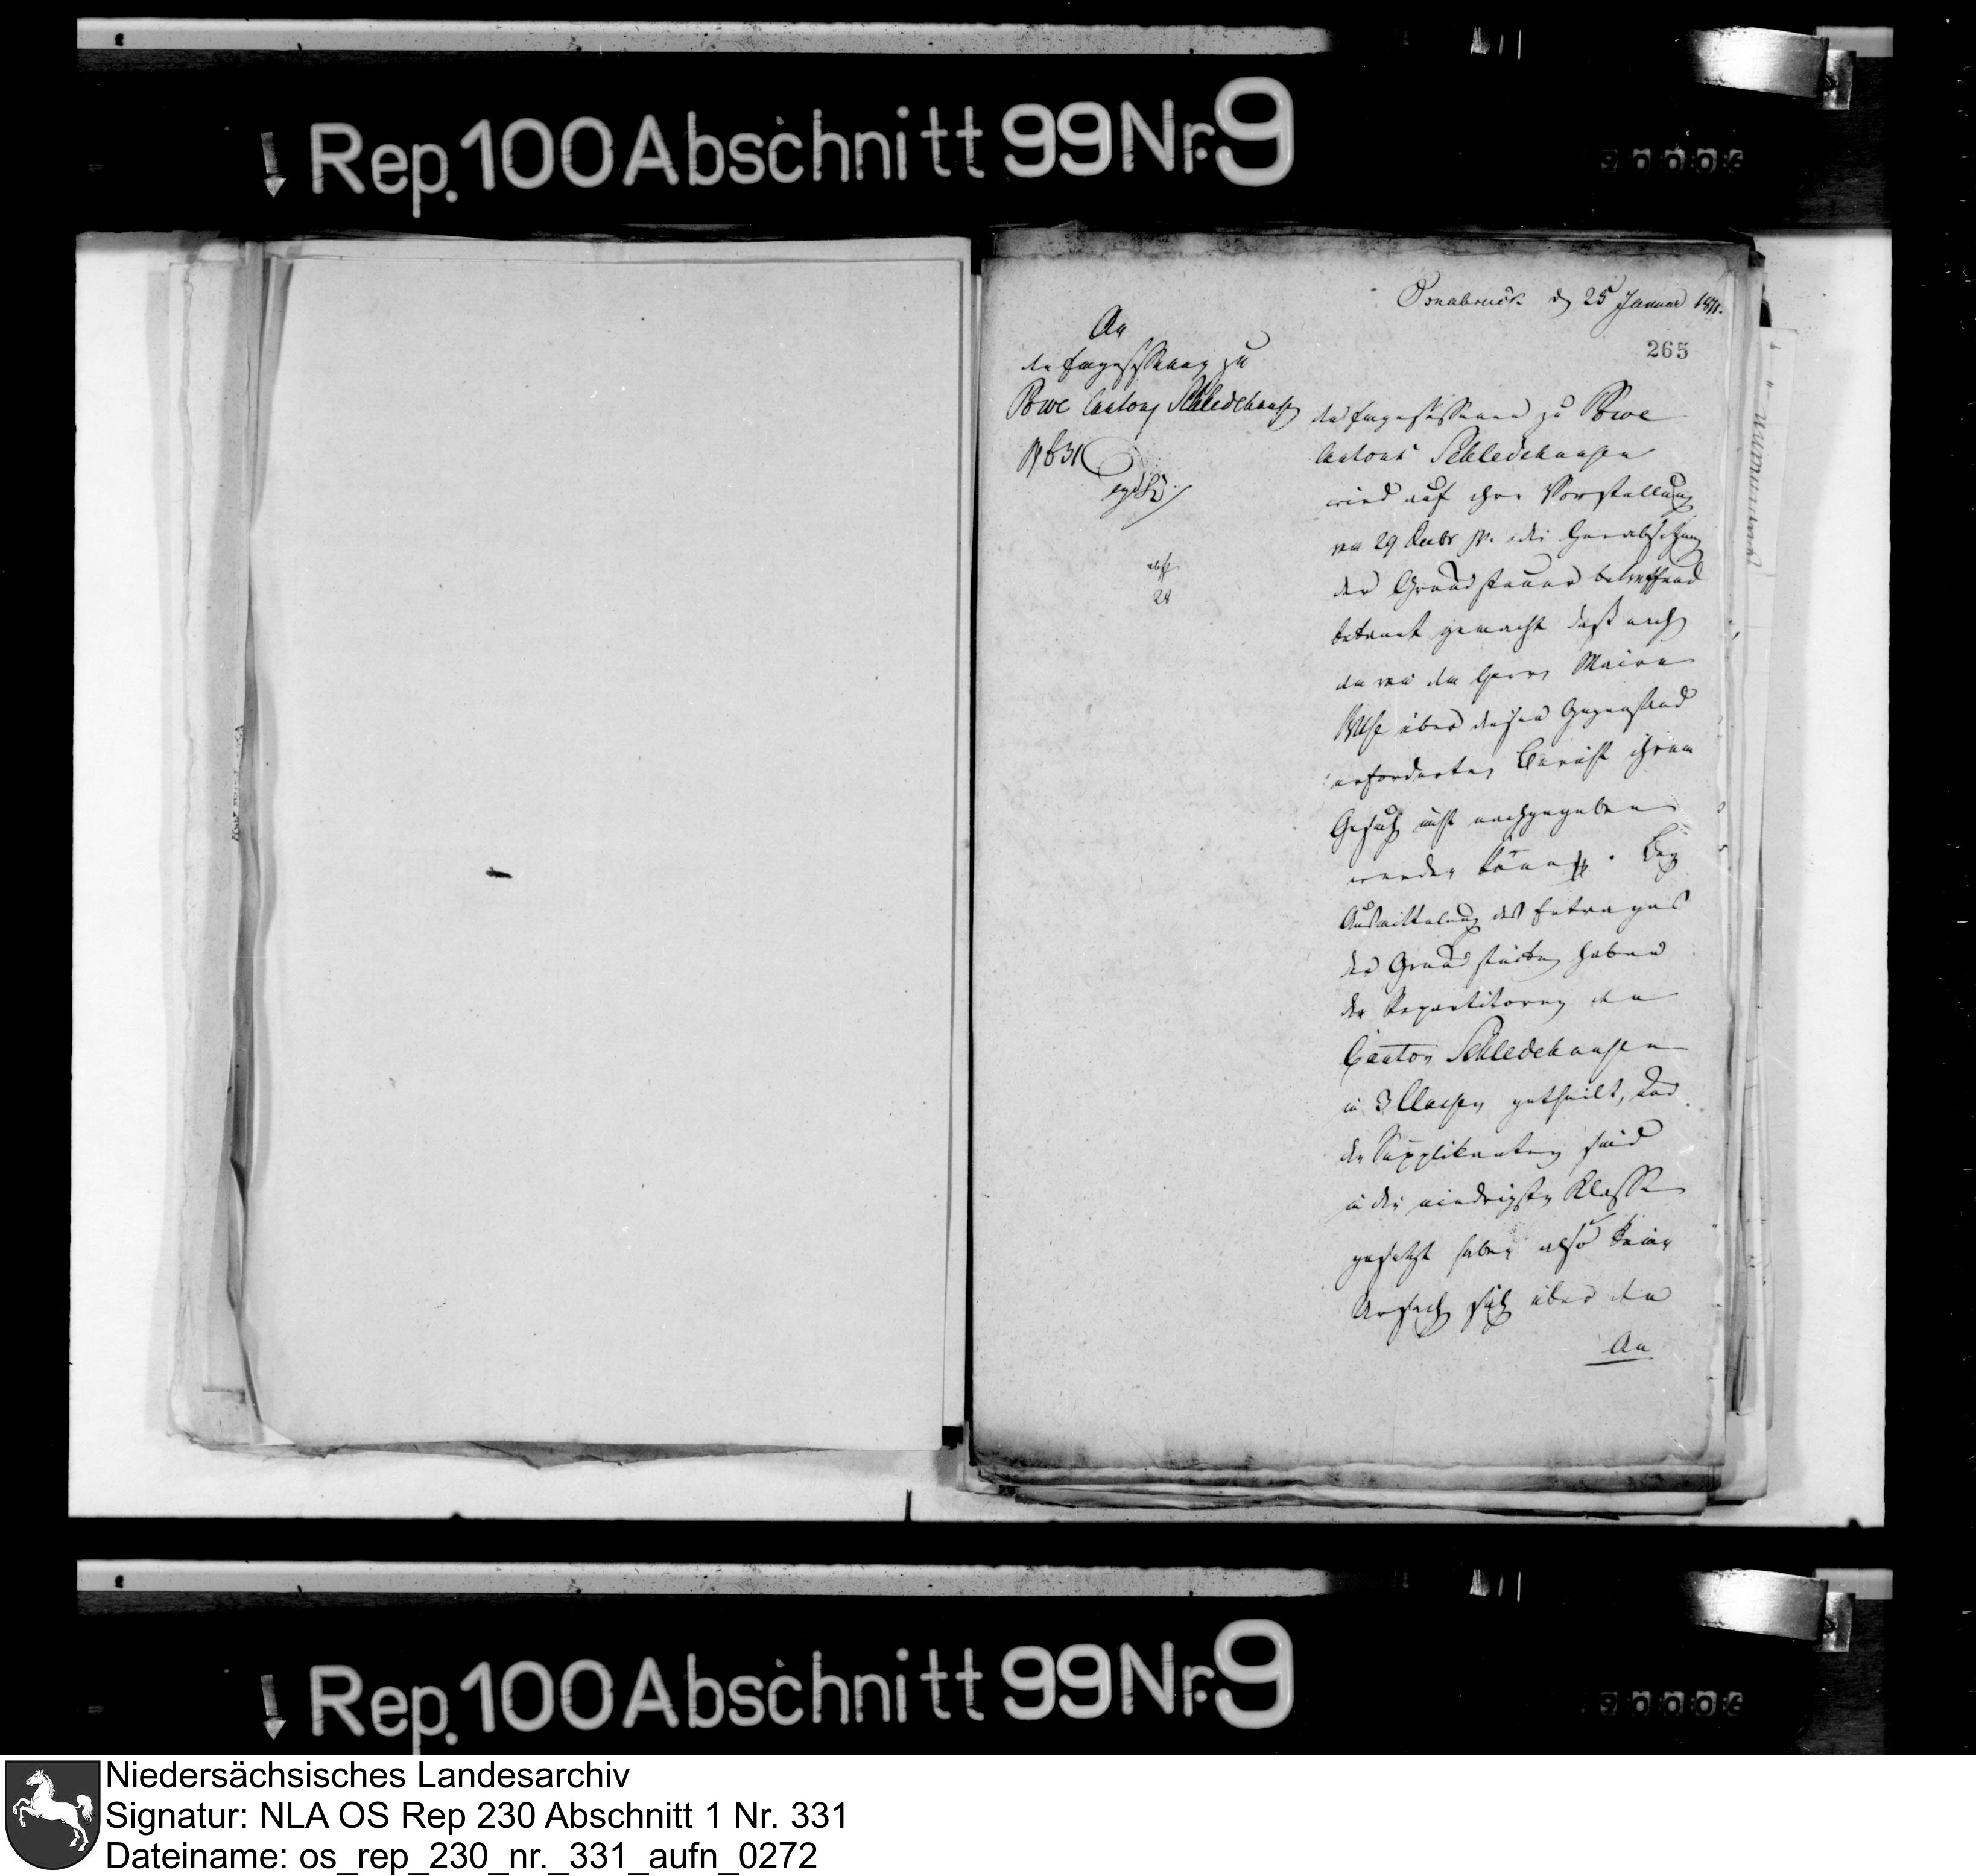 Rep. 100 Abschnitt 99 Nr. 9
Osnabruck d 25 Januar 1811.
265
An
die Eingesessenen zu
Powe Cantons Schledehausen
den Eingesessenen zu Powe
Cantons Schledehausen
wird auf ihre Vorstellung
vom 29 Decbr pr. die Herabsetzung
der Grundsteuer betreffend
bekannt gemacht daß nach
dem von dem Herrn Maire
über diesen Gegenstand
erforderten Bericht ihrem
Gesuch nicht nachgegeben
werden könne. Bey
Ausmittelung des Ertrages
der Grundstücke haben
die Repartitoren den
Canton Schledehausen
in 3 Classen getheilt, und
die Supplikanten sind
in die niedrigste Klasse
gesetzt haben also keine
Ursach sich über den
An
28
Rep. 100 Abschnitt 99 Nr. 9
Niedersächsisches Landesarchiv
Signatur: NLA OS Rep 230 Abschnitt 1 Nr. 331
Dateiname: os_rep_230_nr._331_aufn_0272